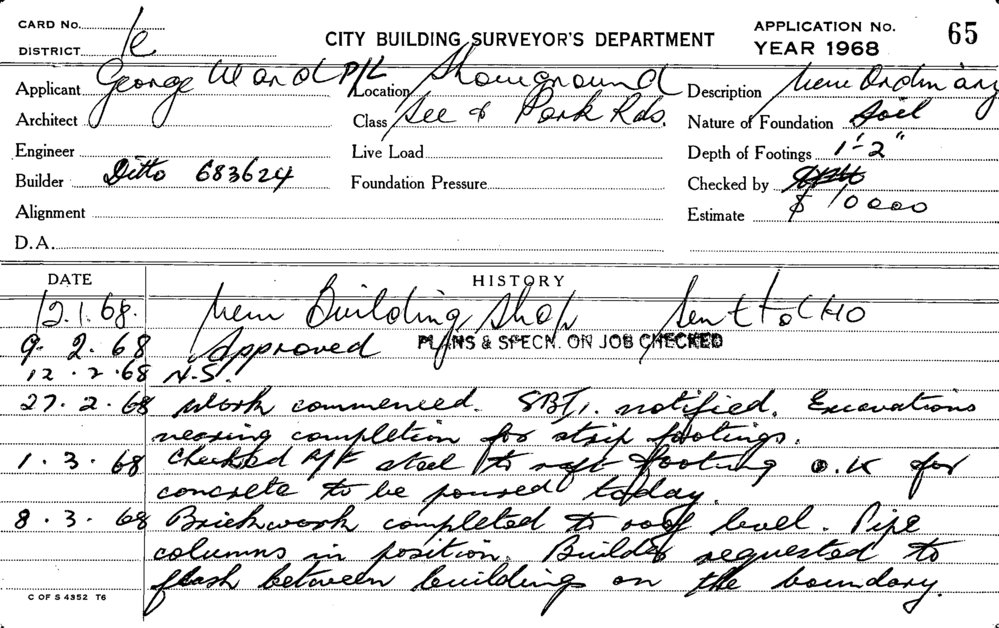 CARD No.
DISTRICT
CITY BUILDING SURVEYOR'S DEPARTMENT
APPLICATION No. 65
YEAR 1968
Applicant George Ward P/L
Location Showground
Description New Ordinary
Architect
Class See & Park Rds.
Nature of Foundation Soil
Engineer
Live Load
Depth of Footings 1'-2"
Builder Ditto 683624
Foundation Pressure
Checked by
Alignment
Estimate $ 10000
D.A.
DATE HISTORY
12.1.68. New Building Shop Sent to CHO
9. 2. 68 Approved PLANS & SPECN. ON JOB CHECKED
12. 2. 68 N.S.
27. 2. 68 Work commenced. SBI. notified. Excavations
nearing completion for strip footings.
1. 3. 68 Checked R/F steel to raft footing O.K for
concrete to be poured today.
8. 3. 68 Brickwork completed to roof level. Pipe
columns in position. Builder requested to
flash between buildings on the boundary.
C OF S 4352 T6